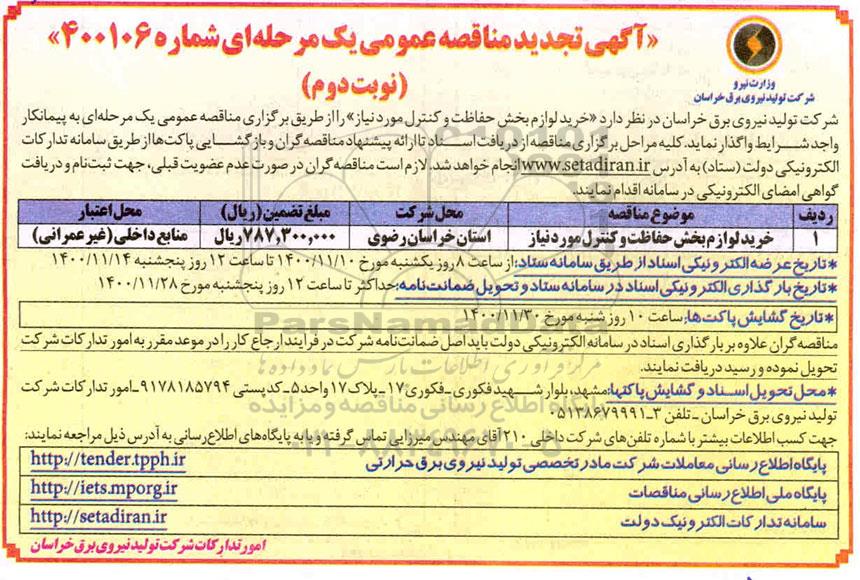 «آگهی تجدید مناقصه عمومی یک مرحله‌ای شماره ۴۰۰۱۰۶»
(نوبت دوم)
وزارت نیرو
شرکت تولید نیروی برق خراسان
شرکت تولید نیروی برق خراسان در نظر دارد «خرید لوازم بخش حفاظت و کنترل مورد نیاز» را از طریق برگزاری مناقصه عمومی یک مرحله‌ای به پیمانکار
واجد شرایط واگذار نماید. کلیه مراحل برگزاری مناقصه از دریافت اسناد تا ارائه پیشنهاد مناقصه گران و بازگشایی پاکت‌ها از طریق سامانه تدارکات
الکترونیکی دولت (ستاد) به آدرس www.setadiran.ir انجام خواهد شد. لازم است مناقصه گران در صورت عدم عضویت قبلی، جهت ثبت‌نام و دریافت
گواهی امضای الکترونیکی در سامانه اقدام نمایند.
ردیف موضوع مناقصه محل شرکت مبلغ تضمین (ریال) محل اعتبار
۱ خرید لوازم بخش حفاظت و کنترل مورد نیاز استان خراسان رضوی ۷۸۷,۳۰۰,۰۰۰ ریال منابع داخلی (غیر عمرانی)
* تاریخ عرضه الکترونیکی اسناد از طریق سامانه ستاد: از ساعت ۸ روز یکشنبه مورخ ۱۴۰۰/۱۱/۱۰ تا ساعت ۱۲ روز پنجشنبه ۱۴۰۰/۱۱/۱۴
* تاریخ بارگذاری الکترونیکی اسناد در سامانه ستاد و تحویل ضمانت‌نامه: حداکثر تا ساعت ۱۲ روز پنجشنبه مورخ ۱۴۰۰/۱۱/۲۸
* تاریخ گشایش پاکت‌ها: ساعت ۱۰ روز شنبه مورخ ۱۴۰۰/۱۱/۳۰
مناقصه گران علاوه بر بارگذاری اسناد در سامانه الکترونیکی دولت باید اصل ضمانت‌نامه شرکت در فرایند ارجاع کار را در موعد مقرر به امور تدارکات شرکت
تحویل نموده و رسید دریافت نمایند.
* محل تحویل اسناد و گشایش پاکتها: مشهد، بلوار شهید فکوری - فکوری ۱۷ - پلاک ۱۷ واحد ۵ - کدپستی ۹۱۷۸۱۸۵۷۹۴ - امور تدارکات شرکت
تولید نیروی برق خراسان - تلفن ۳-۰۵۱۳۸۶۷۹۹۹۱
جهت کسب اطلاعات بیشتر با شماره تلفن‌های شرکت داخلی ۲۱۰ آقای مهندس میرزایی تماس گرفته و یا به پایگاه‌های اطلاع‌رسانی به آدرس ذیل مراجعه نمایند:
پایگاه اطلاع رسانی معاملات شرکت مادر تخصصی تولید نیروی برق حرارتی http://tender.tpph.ir
پایگاه ملی اطلاع رسانی مناقصات http://iets.mporg.ir
سامانه تدارکات الکترونیک دولت http://setadiran.ir
امور تدارکات شرکت تولید نیروی برق خراسان
ParsNamadData
پایگاه اطلاع رسانی مناقصه و مزایده